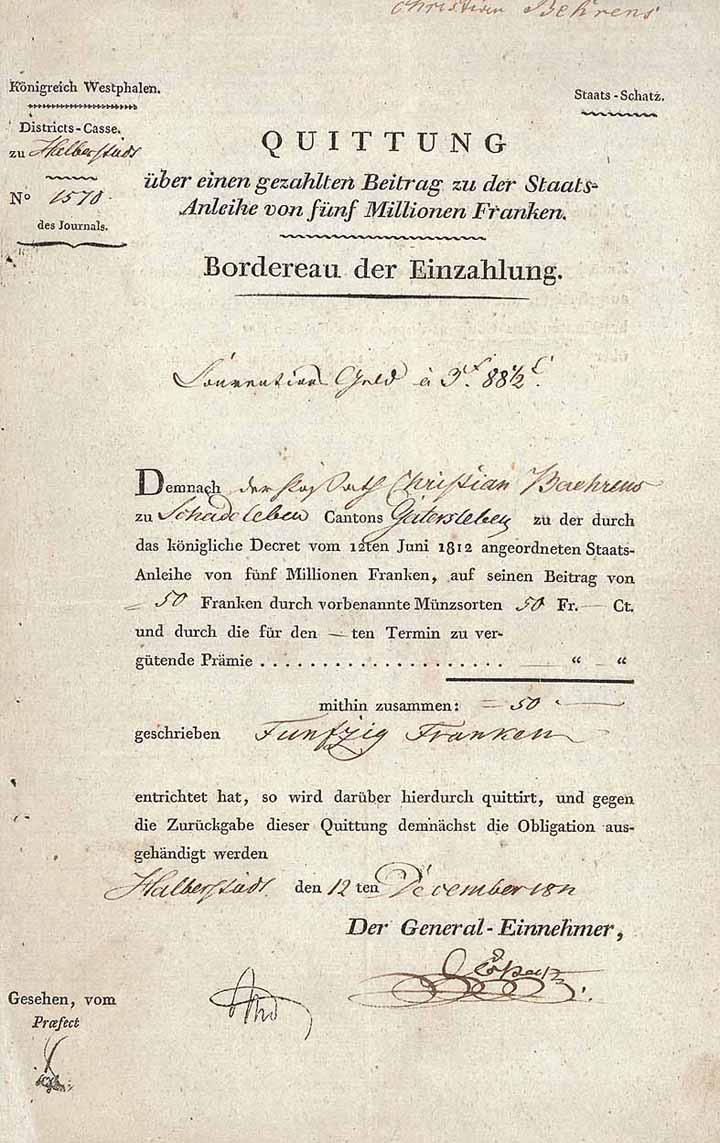 Christian Behrens
Königreich Westphalen.
Districts-Casse.
zu Halberstadt
Nº 1570.
des Journals.
Staats-Schatz.
QUITTUNG
über einen gezahlten Beitrag zu der Staats-
Anleihe von fünf Millionen Franken.
Bordereau der Einzahlung.
Conventions Geld à 3 f. 88½ c.
Demnach der Christian Baehrens
zu Schadeleben Cantons Gatersleben zu der durch
das königliche Decret vom 12ten Juni 1812 angeordneten Staats-
Anleihe von fünf Millionen Franken, auf seinen Beitrag von
50 Franken durch vorbenannte Münzsorten 50 Fr. — Ct.
und durch die für den —ten Termin zu ver-
gütende Prämie . . . . . . . . . . . . . . . . . . . . . — “ — “
mithin zusammen: = 50 . —
geschrieben Funfzig Franken
entrichtet hat, so wird darüber hierdurch quittirt, und gegen
die Zurückgabe dieser Quittung demnächst die Obligation aus-
gehändigt werden
Halberstadt den 12 ten December 181
Der General-Einnehmer,
Gesehen, vom
Præfect